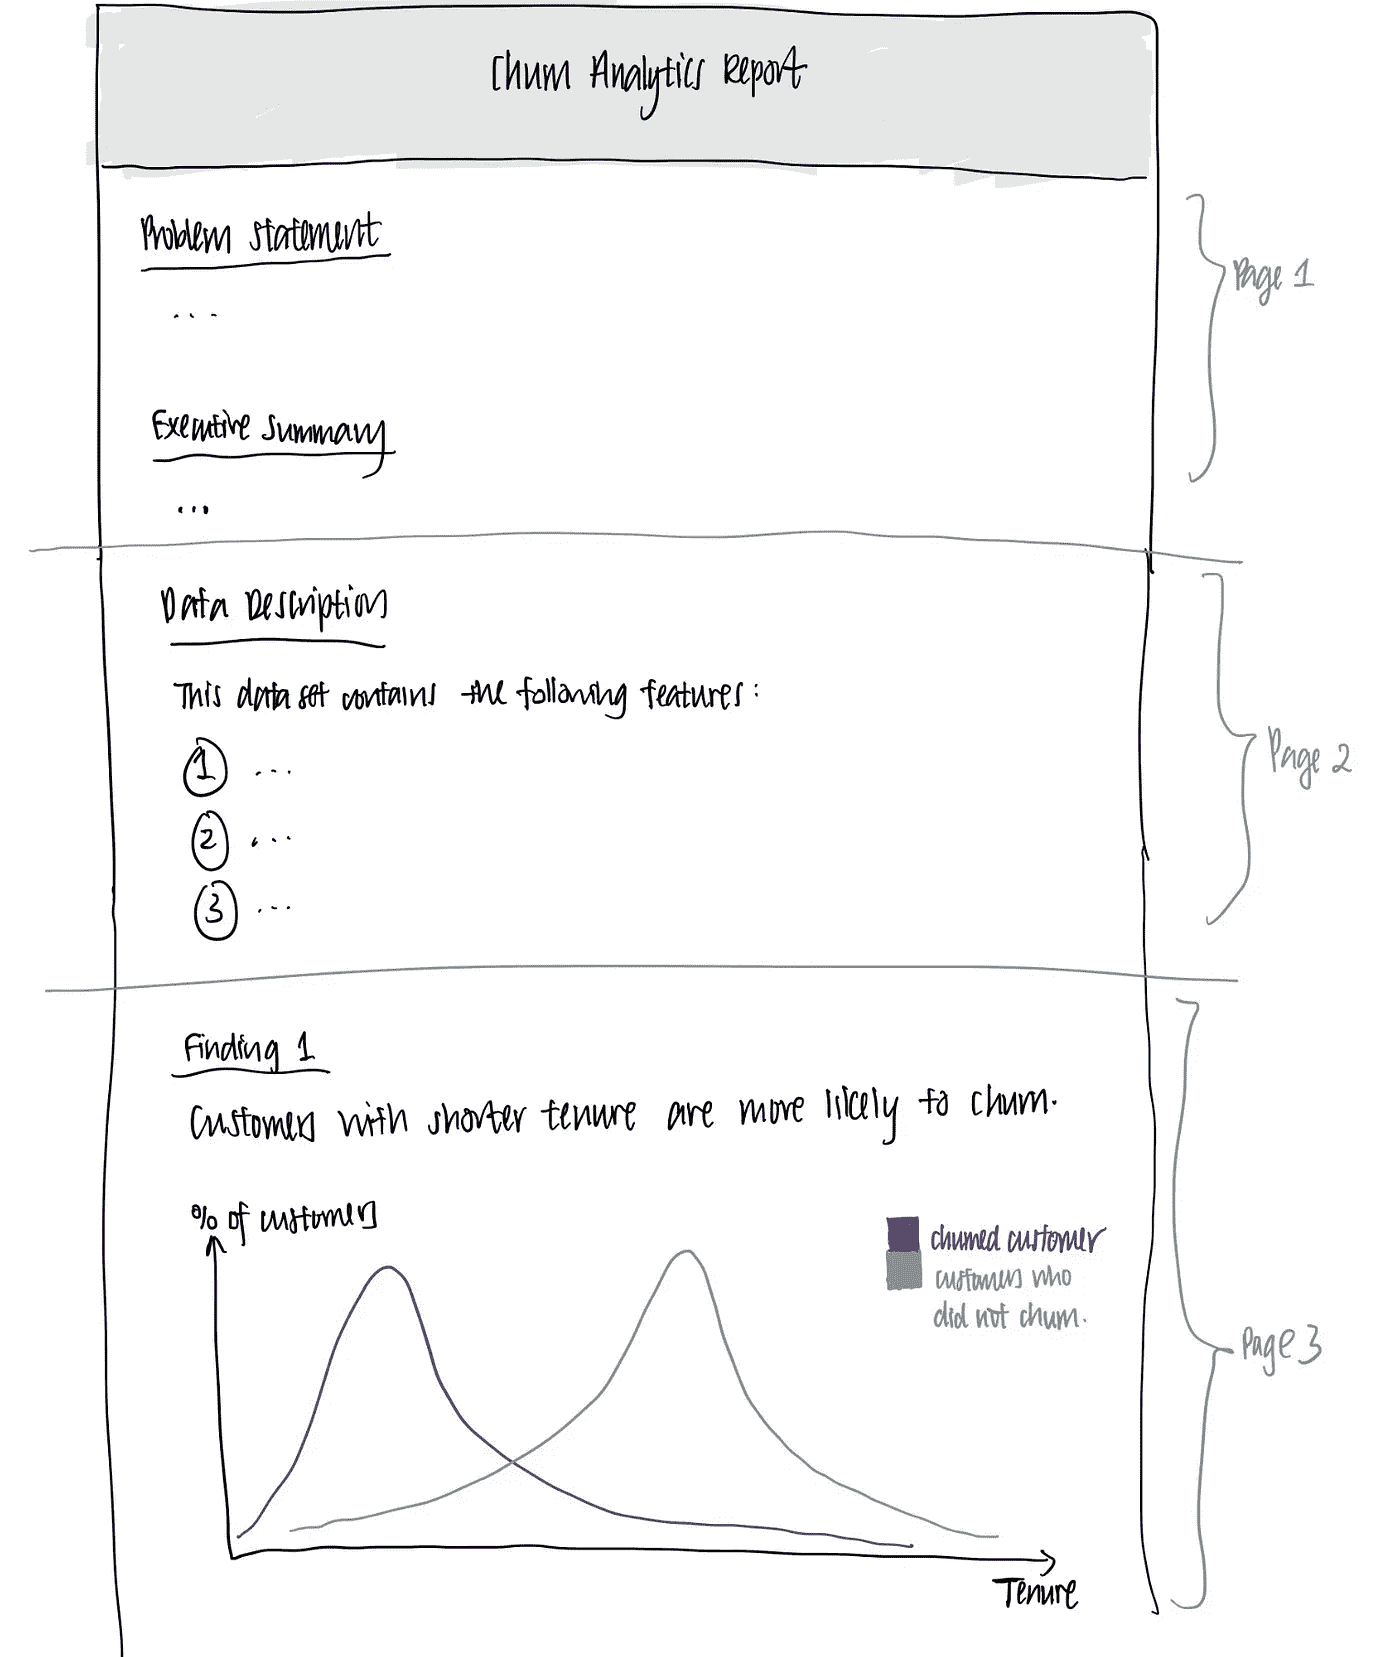 Churn Analytics Report
Problem statement
...
Page 1
Executive summary
...
Data Description
This data set contains the following features:
1 ...
2 ...
3 ...
Page 2
Finding 1
Customers with shorter tenure are more likely to churn.
% of customers
churned customer
customers who
did not churn.
Page 3
Tenure